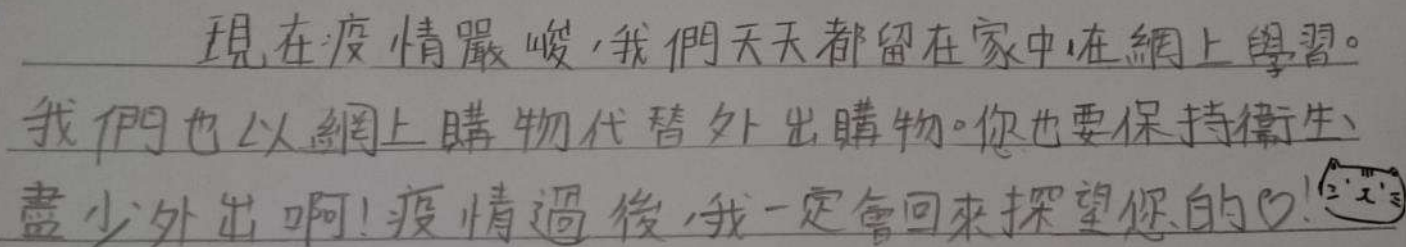 現在疫情嚴峻，我們天天都留在家中，在網上學習。
我們也以網上購物代替外出購物。你也要保持衞生、
盡少外出啊！疫情過後，我一定會回來探望您的♡！